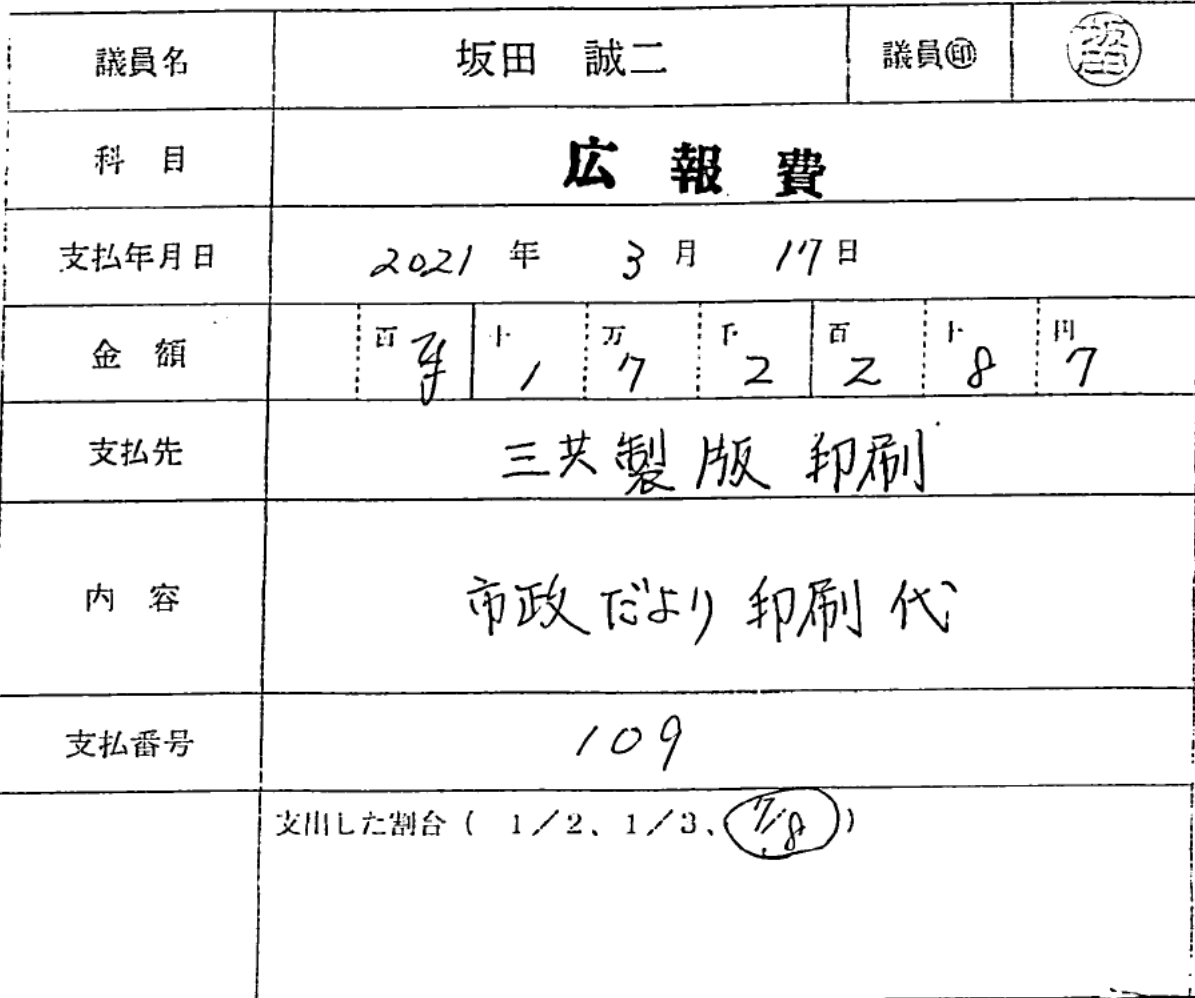 議員名 坂田 誠二 議員㊞ 坂田
科 目 広 報 費
支払年月日 2021 年 3 月 17 日
金 額 百 ¥ 十 1 万 7 千 2 百 2 十 8 円 7
支払先 三共製版印刷
内 容 市政だより印刷代
支払番号 109
支出した割合 ( 1/2、1/3、7/8 )